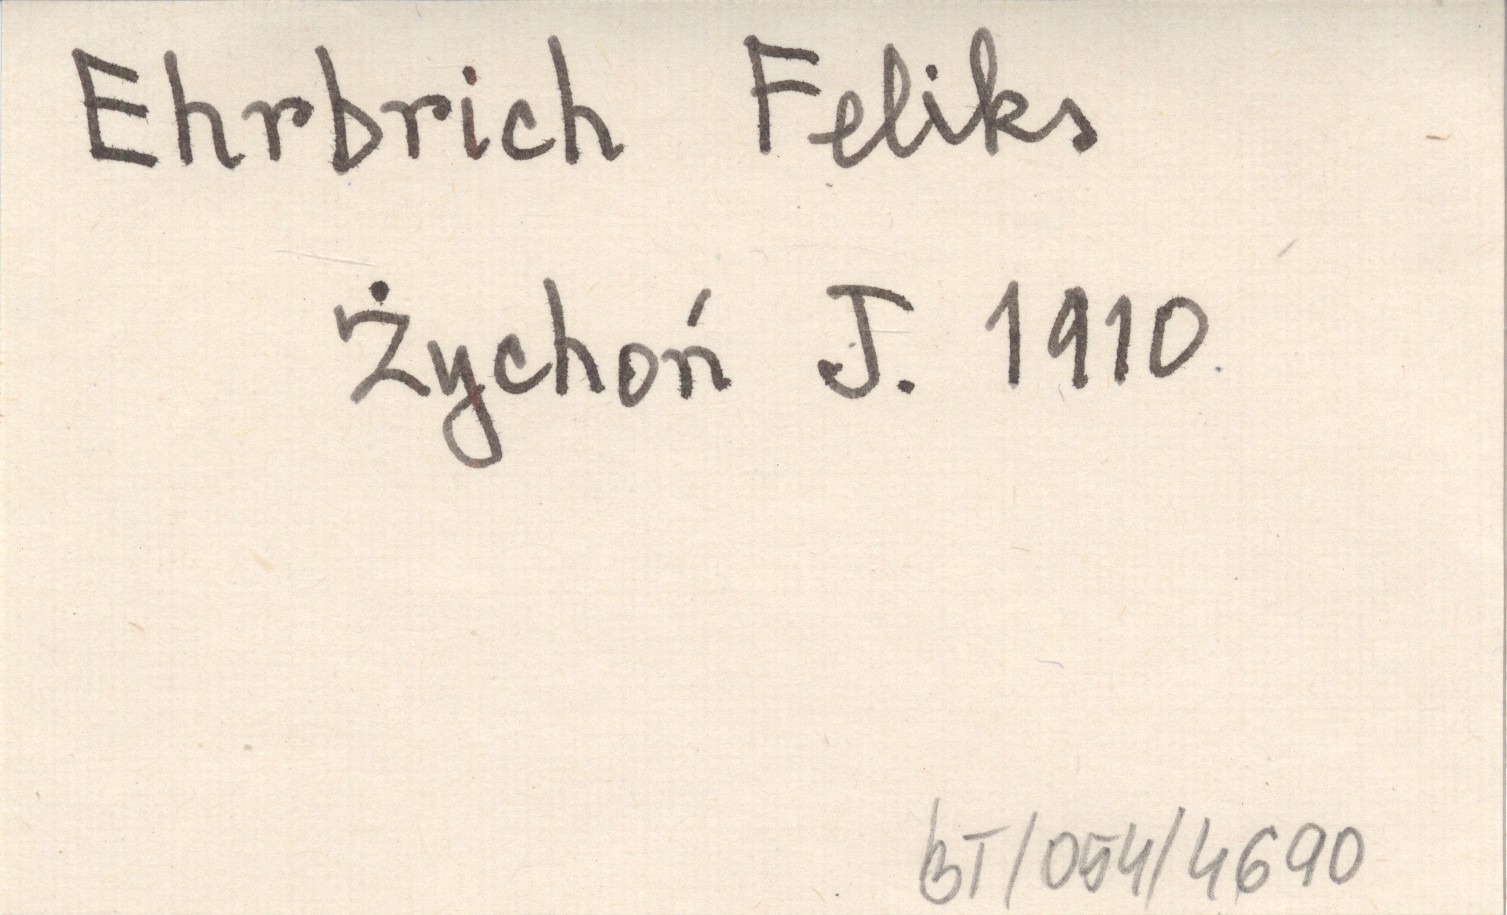 Ehrbrich Feliks
Żychoń J. 1910
BT/054/4690